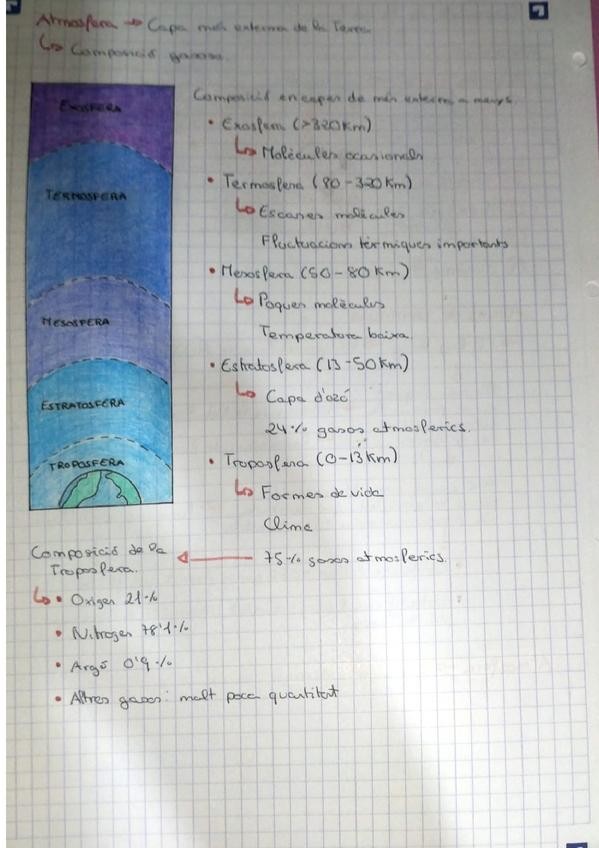 Atmosfera → Capa més externa de la Terra.
↳ Composició gasosa.
EXOSFERA
TERMOSFERA
MESOSFERA
ESTRATOSFERA
TROPOSFERA
Composició en capes de més externa a menys.
• Exosfera (>320Km)
↳ Molècules ocasionals
• Termosfera (80-320 Km)
↳ Escasses molècules
Fluctuacions tèrmiques importants
• Mesosfera (50-80 Km)
↳ Poques molècules
Temperatura baixa
• Estratosfera (13-50Km)
↳ Capa d'ozó
24% gasos atmosfèrics.
• Troposfera (0-13 Km)
↳ Formes de vida
Clima
75% gasos atmosfèrics.
Composició de la
Troposfera.
↳ • Oxigen 21%
• Nitrogen 78'1%
• Argó 0'9%
• Altres gasos: molt poca quantitat